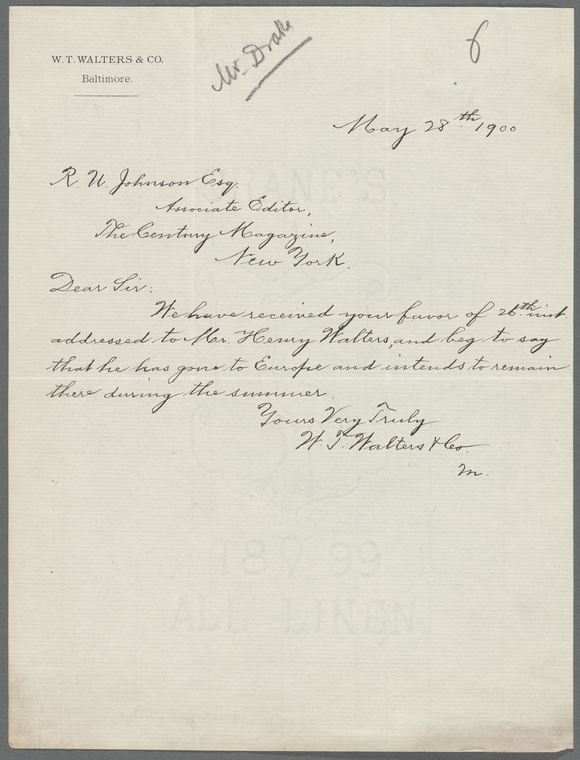 W. T. WALTERS & CO.
Baltimore.
Mr. Drake
May 28th. 1900
R. U. Johnson Esq.
Associate Editor,
The Century Magazine,
New York.
Dear Sir:
We have received your favor of 26th inst.
addressed to Mr. Henry Walters, and beg to say
that he has gone to Europe and intends to remain
there during the summer.
Yours Very Truly
W. T. Walters & Co.
m.
CRANE'S
1899
ALL LINEN